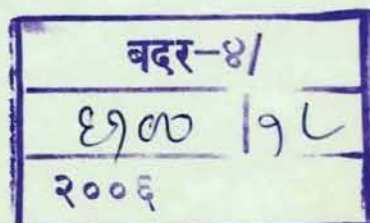 बदर-४/
६१०० |१८
२००६